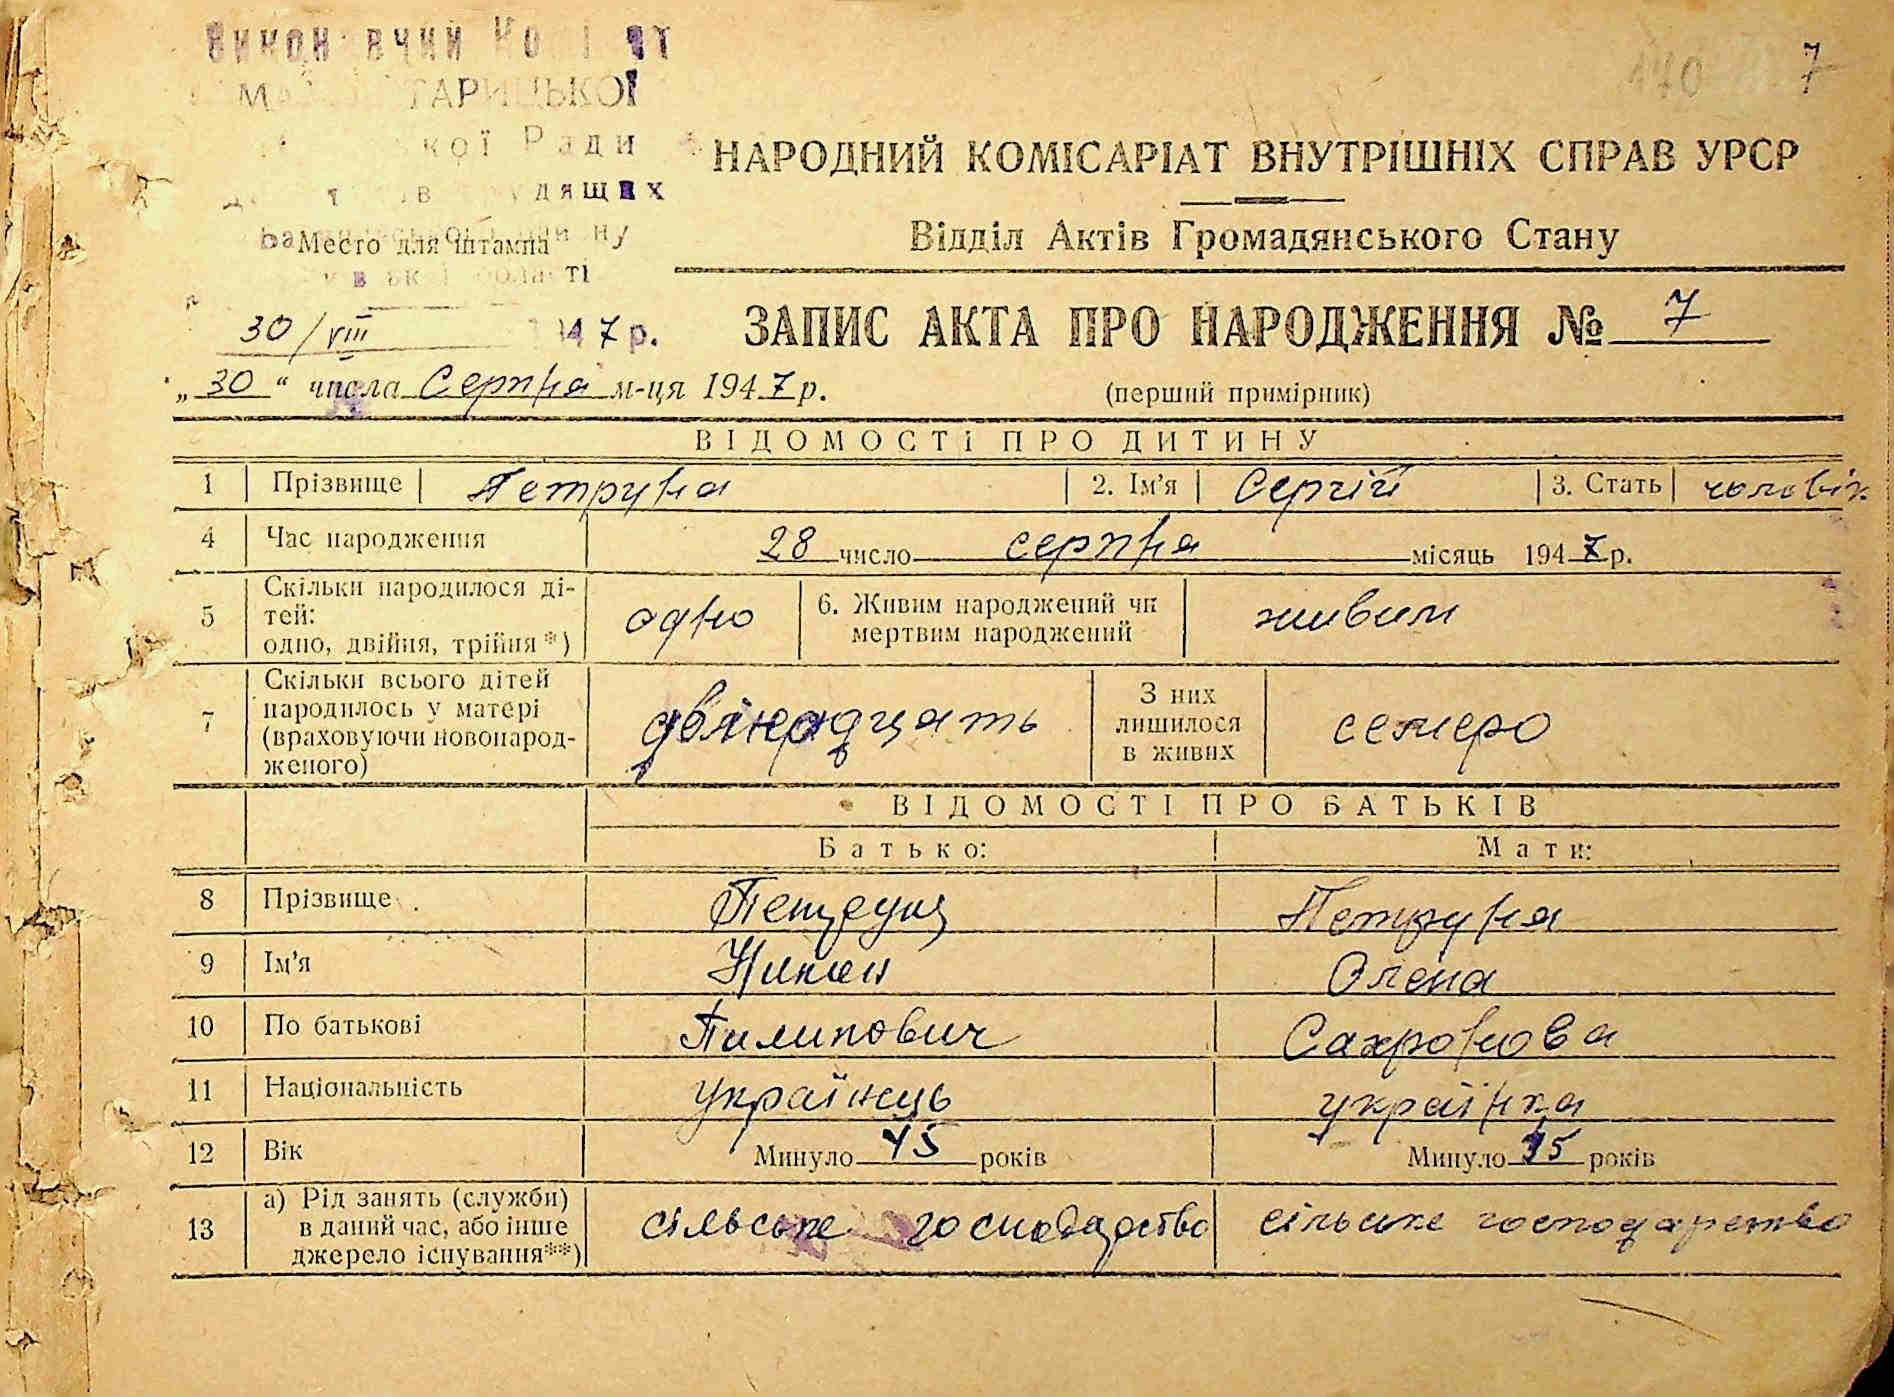 7
НАРОДНИЙ КОМІСАРІАТ ВНУТРІШНІХ СПРАВ УРСР
Відділ Актів Громадянського Стану
Место для штампа
30/VIII 1947 р.
ЗАПИС АКТА ПРО НАРОДЖЕННЯ № 7
„30“ числа Серпня м-ця 1947 р.
(перший примірник)
ВІДОМОСТІ ПРО ДИТИНУ
1 Прізвище Петруня 2. Ім'я Сергій 3. Стать чоловік
4 Час народження 28 число серпня місяць 1947 р.
5 Скільки народилося ді-
тей:
одно, двійня, трійня*)
одно
6. Живим народжений чи
мертвим народжений
живим
7 Скільки всього дітей
народилось у матері
(враховуючи новонарод-
женого)
двінадцать
З них
лишилося
в живих
семеро
ВІДОМОСТІ ПРО БАТЬКІВ
Батько: Мати:
8 Прізвище Петруня Петруня
9 Ім'я Никон Олена
10 По батькові Пилипович Сахронова
11 Національність українець українка
12 Вік Минуло 45 років Минуло 35 років
13 а) Рід занять (служби)
в даний час, або інше
джерело існування**)
сільське господарство сільське господарство